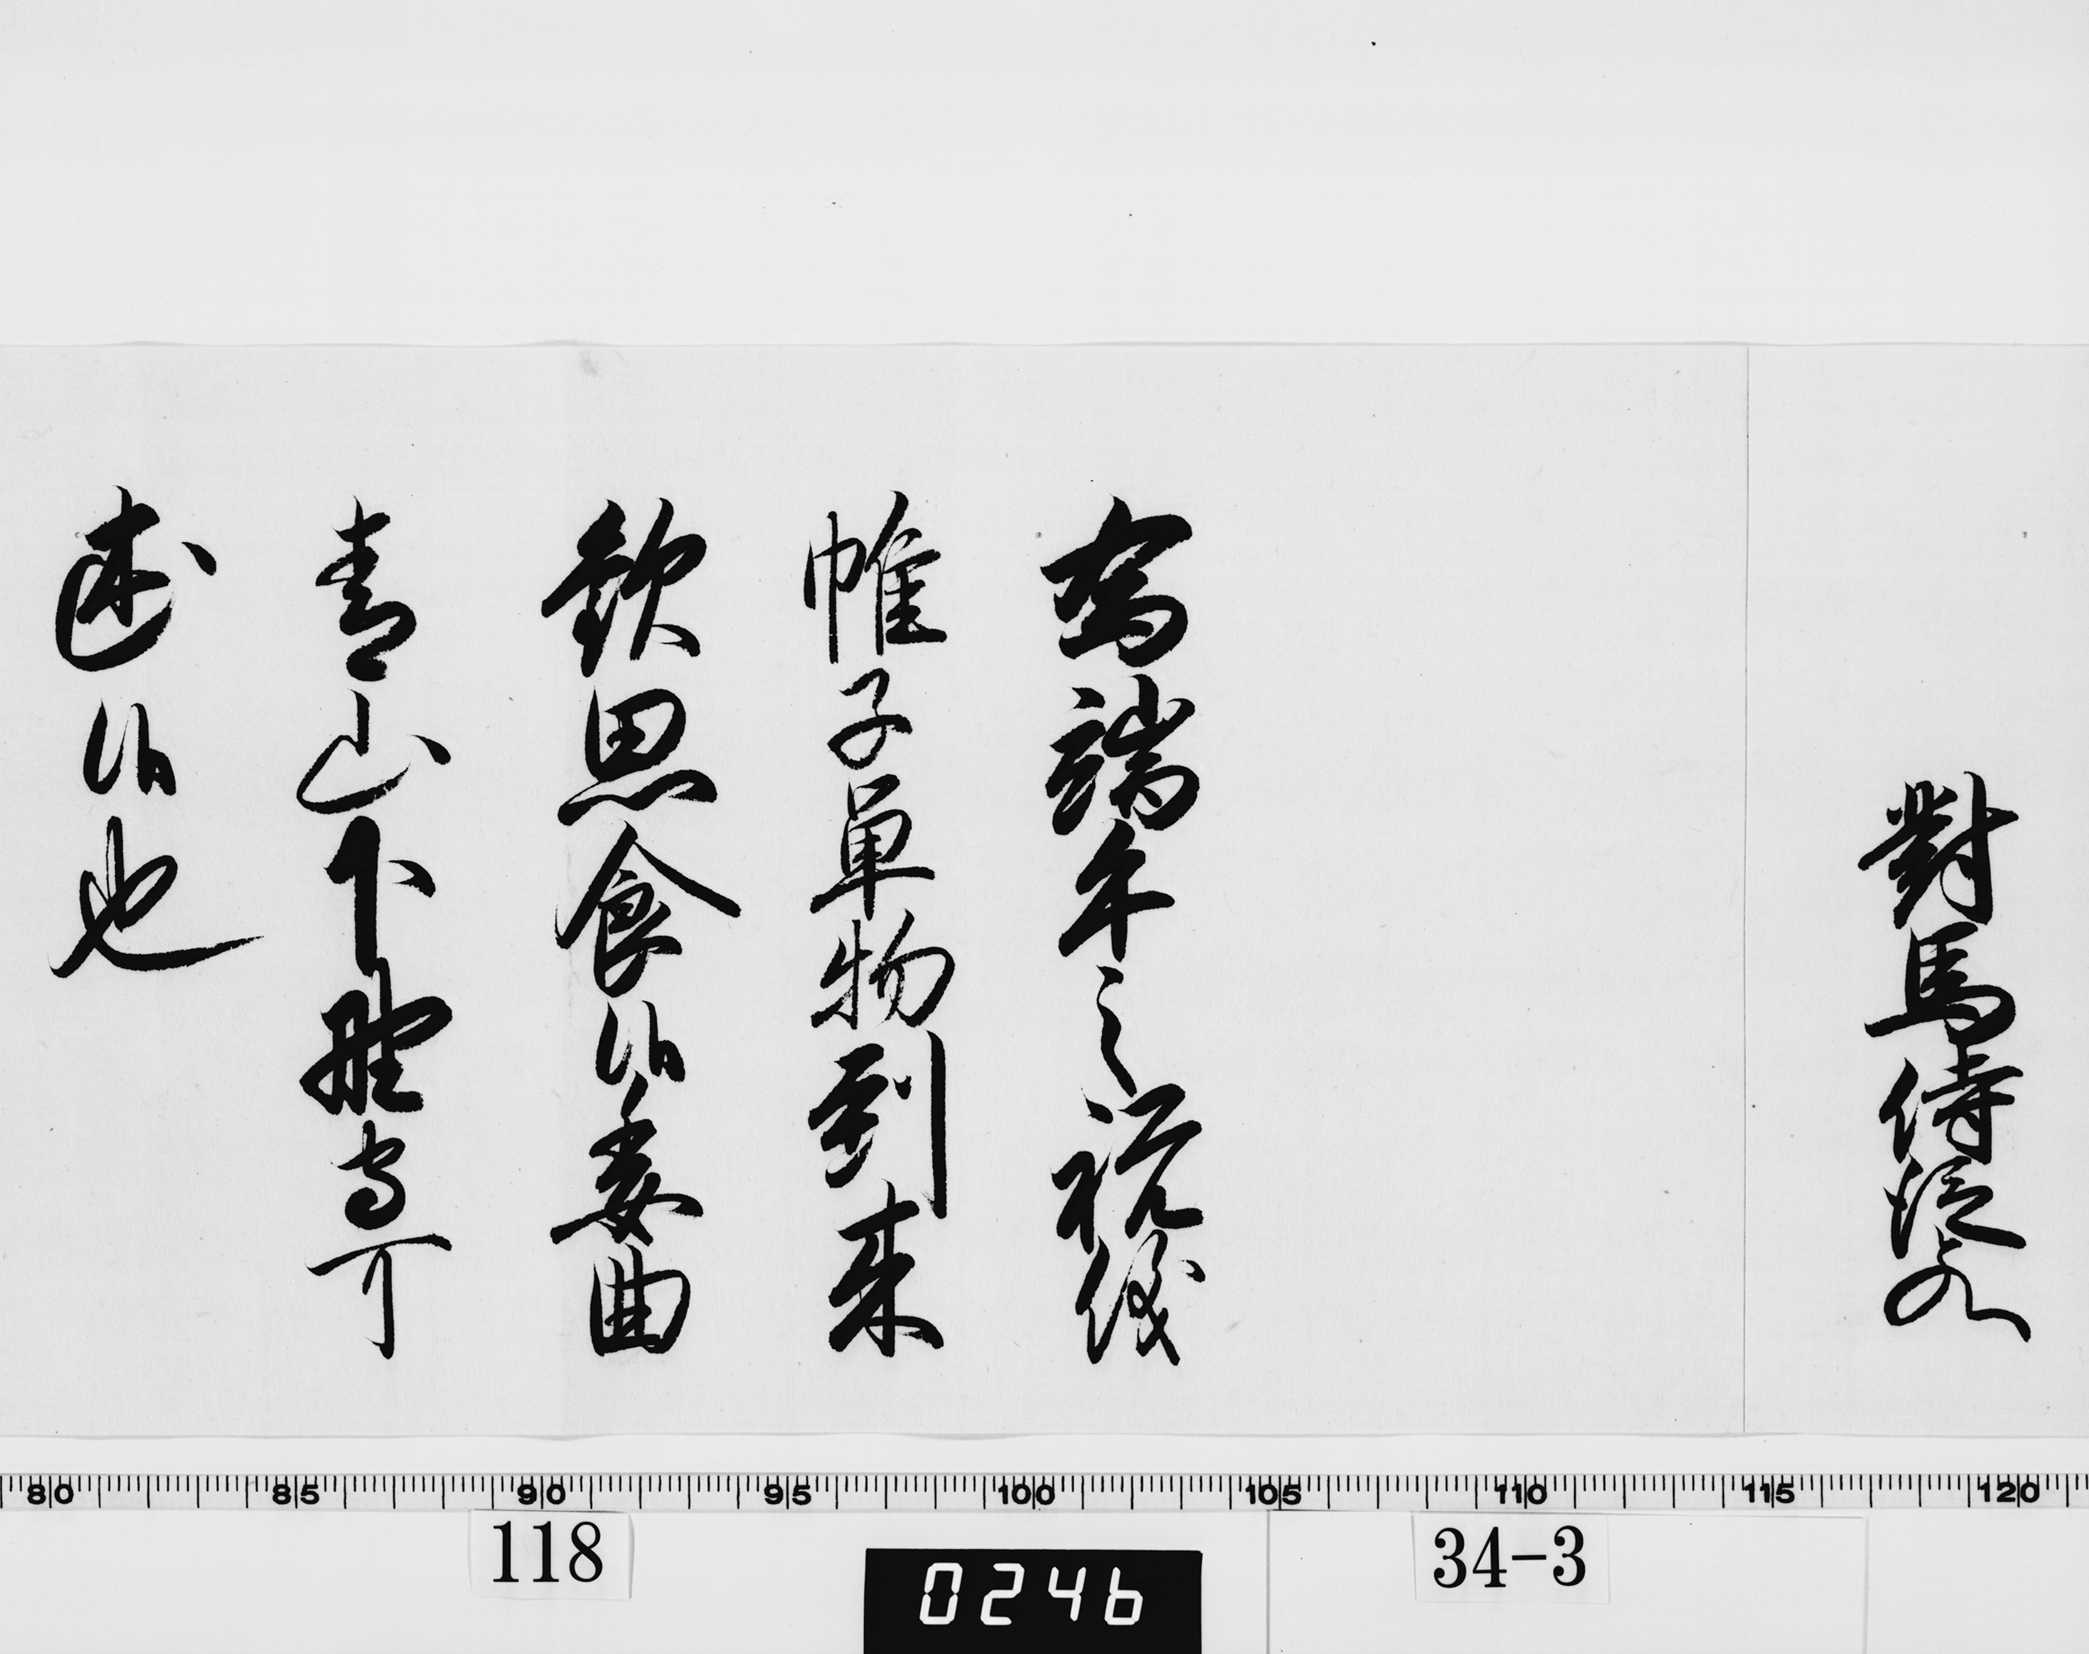 對馬侍従殿
為端午之祝儀
帷子單物到来
歓思食候委曲
青山下野守可
述候也
80 85 90 95 100 105 110 115 120
118
0246
34-3